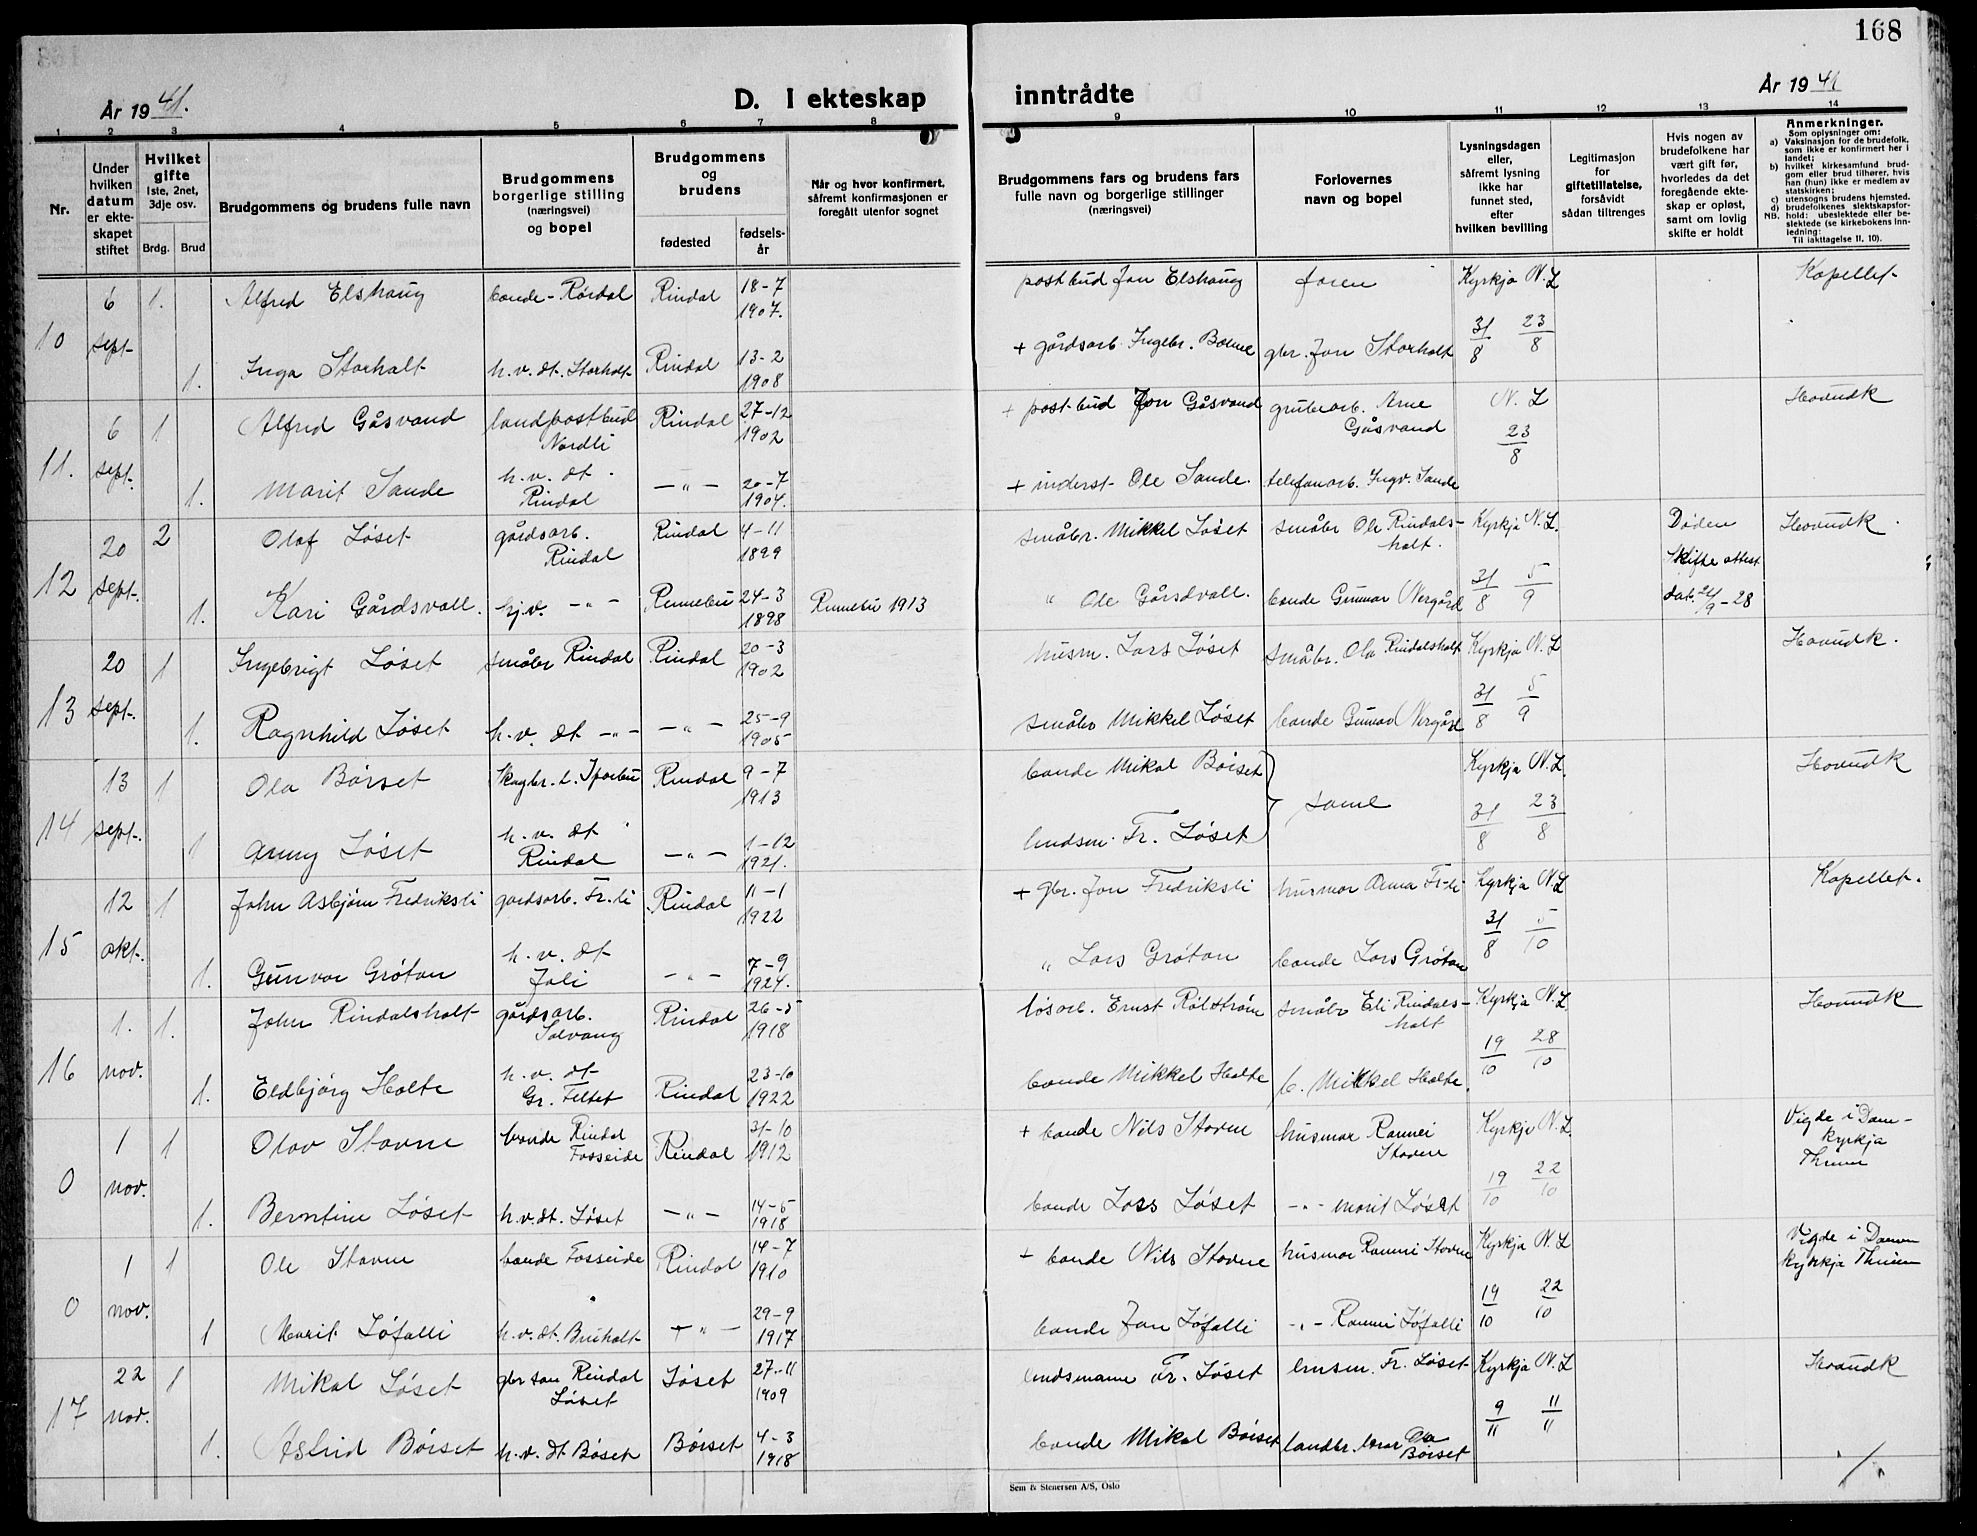 168
År 1941.
D. I ekteskap inntrådte
År 1941
1 2 3 4 5 6 7 8 9 10 11 12 13 14
Nr.
Under hvilken datum er ekteskapet stiftet
Hvilket gifte
1ste, 2net, 3dje osv.
Brdg. Brud
Brudgommens og brudens fulle navn
Brudgommens borgerlige stilling (næringsvei) og bopel
Brudgommens og brudens
fødested
fødselsår
Når og hvor konfirmert, såfremt konfirmasjonen er foregått utenfor sognet
Brudgommens fars og brudens fars fulle navn og borgerlige stillinger (næringsvei)
Forlovernes navn og bopel
Lysningsdagen eller, såfremt lysning ikke har funnet sted, efter hvilken bevilling
Legitimasjon for giftetillatelse, forsåvidt sådan tiltrenges
Hvis nogen av brudefolkene har vært gift før, hvorledes da det foregående ekteskap er opløst, samt om lovlig skifte er holdt
Anmerkninger.
Som oplysninger om:
a) Vaksinasjon for de brudefolk, som ikke er konfirmert her i landet;
b) hvilket kirkesamfund brudgom eller brud tilhører, hvis han (hun) ikke er medlem av statskirken;
c) utensogns brudens hjemsted.
d) brudefolkenes slektskapsforhold: ubeslektede eller beslektede (se kirkebokens innledning:
NB.
Til iakttagelse II, 10).
10 6 sept. 1. Alfred Elshaug bonde - Rørdal Rindal 18-7 1907. postbud Jon Elshaug foren Kyrkja N.L 31/8 23/8 Kapellet
1. Inga Storholt h.v. dt. Storholt Rindal 13-2 1908 + gårdsarb. Ingebr. Bolme gbr. Jon Storholt
11. 6 sept. 1 Alfred Gåsvand landpostbud Nordli Rindal 27-12 1902 + postbud Jon Gåsvand grubearb. Arne Gåsvand N. L 23/8 Hovudk
1. Marit Sande h.v. dt. Rindal -"- 20-7 1904. + inderst Ole Sande. telefonarb. Ingv. Sande
12 20 sept. 2 Olaf Løset gårdsarb. Rindal Rindal 4-11 1899 småbr. Mikkel Løset småbr Ole Rindalsholt. Kyrkja N.L. 31/8 5/9 Døden Skifteattest dat. 24/9-28 Hovudk.
1. Kari Gårdsvoll. hj.v. -"- Rennebu 24-3 1898 Rennebu 1913 " Ole Gårsdvoll. bonde Gunnar Nergård
13 20 sept. 1 Ingebrigt Løset småbr Rindal Rindal 20-3 1902 husm. Lars Løset småbr. Ola Rindalsholt Kyrkja N.L 31/8 5/9 Hovudk.
1. Ragnhild Løset h.v. dt -"- -"- 25-9 1905 småbr Mikkel Løset bonde Gunnar Nergård
14 13 sept. 1 Ola Børset Rindal 9-7 1913 bonde Mikal Børset same Kyrkja N.L. 31/8 23/8 Hovudk
1 Anny Løset h.v. dt Rindal -"- 1-12 1921. lendsm. Fr. Løset
15 12 okt. 1 John Asbjørn Fredriksli gardsarb. Fr.li Rindal 11-1 1922 + gbr. Jon Fredriksli husmor Anna Fr-li Kyrkja N.L 31/8 5/10 Kapellet.
1. Gunvor Grøtan h.v. dt Joli -"- 7-9 1924. " Lars Grøtan bonde Lars Grøtan
16 1. nov. 1. John Rindalsholt gårdsarb. Solvang Rindal 26-5 1918 løsarb. Ernst Rølstrøm småbr Eli Rindalsholt Kyrkja N.L 19/10 28/10 Hovudk
1. Eldbjörg Holte h.v. dt Gr. Feltet Rindal 23-10 1922 bonde Mikkel Holte b. Mikkel Holte.
0 1 nov. 1 Olav Stavne bonde Rindal Fosseide Rindal 31-10 1912 + bonde Nils Stavne husmor Rannei Stavne Kyrkja N.L. 19/10 22/10 Vigde i Domkyrkja Thrum
1. Berntine Løset h.v.dt. Løset -"- 14-5 1918 bonde Lars Løset -"- Marit Løset
0 1 nov. 1 Ole Stavne bonde Fosseide Rindal 14-7 1910 + bonde Nils Stavne husmor Rannei Stavne Kyrkja N.L 19/10 22/10 Vigde i kyrkja
1 Marit Løfalli h.v.dt. Bruholt -"- 29-9 1917 bonde Jon Løfalli -"- Rannei Løfalli
17 22 nov. 1 Mikal Løset gbr son Rindal Løset Løset 27-11 1909 lendsmann Fr. Løset lensm. Fr. Løset Kyrkja N.L 9/11 11/11 Hovudk
1. Astrid Børset h.v. dt Bøset Børset 4-3 1918 bonde Mikal Børset landbr. lærar Ola Børset
Sem & Stenersen A/S, Oslo